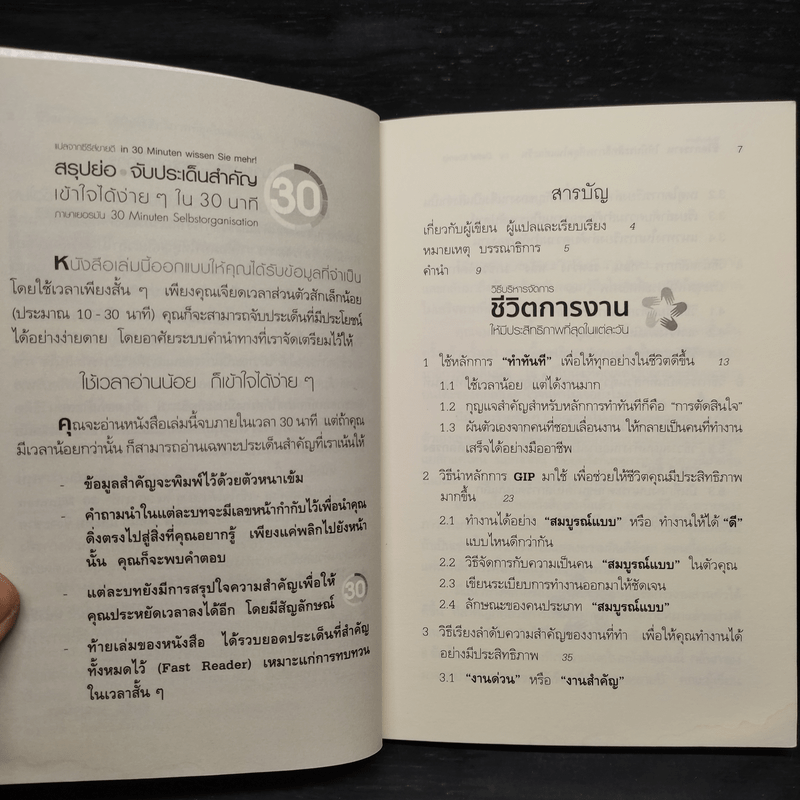 แปลจากซีรีส์ขายดี in 30 Minuten wissen Sie mehr!
สรุปย่อ • จับประเด็นสำคัญ
เข้าใจได้ง่าย ๆ ใน 30 นาที
ภาษาเยอรมัน 30 Minuten Selbstorganisation
30
หนังสือเล่มนี้ออกแบบให้คุณได้รับข้อมูลที่จำเป็น
โดยใช้เวลาเพียงสั้น ๆ เพียงคุณเจียดเวลาส่วนตัวสักเล็กน้อย
(ประมาณ 10 - 30 นาที) คุณก็จะสามารถจับประเด็นที่มีประโยชน์
ได้อย่างง่ายดาย โดยอาศัยระบบคำนำทางที่เราจัดเตรียมไว้ให้
ใช้เวลาอ่านน้อย ก็เข้าใจได้ง่าย ๆ
คุณจะอ่านหนังสือเล่มนี้จบภายในเวลา 30 นาที แต่ถ้าคุณ
มีเวลาน้อยกว่านั้น ก็สามารถอ่านเฉพาะประเด็นสำคัญที่เราเน้นให้
- ข้อมูลสำคัญจะพิมพ์ไว้ด้วยตัวหนาเข้ม
- คำถามนำในแต่ละบทจะมีเลขหน้ากำกับไว้เพื่อนำคุณ
ดิ่งตรงไปสู่สิ่งที่คุณอยากรู้ เพียงแค่พลิกไปยังหน้า
นั้น คุณก็จะพบคำตอบ
- แต่ละบทยังมีการสรุปใจความสำคัญเพื่อให้
คุณประหยัดเวลาลงได้อีก โดยมีสัญลักษณ์ 30
- ท้ายเล่มของหนังสือ ได้รวบยอดประเด็นที่สำคัญ
ทั้งหมดไว้ (Fast Reader) เหมาะแก่การทบทวน
ในเวลาสั้น ๆ
7
สารบัญ
เกี่ยวกับผู้เขียน ผู้แปลและเรียบเรียง 4
หมายเหตุ บรรณาธิการ 5
คำนำ 9
วิธีบริหารจัดการ
ชีวิตการงาน
ให้มีประสิทธิภาพที่สุดในแต่ละวัน
1 ใช้หลักการ "ทำทันที" เพื่อให้ทุกอย่างในชีวิตดีขึ้น 13
1.1 ใช้เวลาน้อย แต่ได้งานมาก
1.2 กุญแจสำคัญสำหรับหลักการทำทันทีก็คือ "การตัดสินใจ"
1.3 ผันตัวเองจากคนที่ชอบเลื่อนงาน ให้กลายเป็นคนที่ทำงาน
เสร็จได้อย่างมืออาชีพ
2 วิธีนำหลักการ GIP มาใช้ เพื่อช่วยให้ชีวิตคุณมีประสิทธิภาพ
มากขึ้น 23
2.1 ทำงานได้อย่าง "สมบูรณ์แบบ" หรือ ทำงานให้ได้ "ดี"
แบบไหนดีกว่ากัน
2.2 วิธีจัดการกับความเป็นคน "สมบูรณ์แบบ" ในตัวคุณ
2.3 เขียนระเบียบการทำงานออกมาให้ชัดเจน
2.4 ลักษณะของคนประเภท "สมบูรณ์แบบ"
3 วิธีเรียงลำดับความสำคัญของงานที่ทำ เพื่อให้คุณทำงานได้
อย่างมีประสิทธิภาพ 35
3.1 "งานด่วน" หรือ "งานสำคัญ"